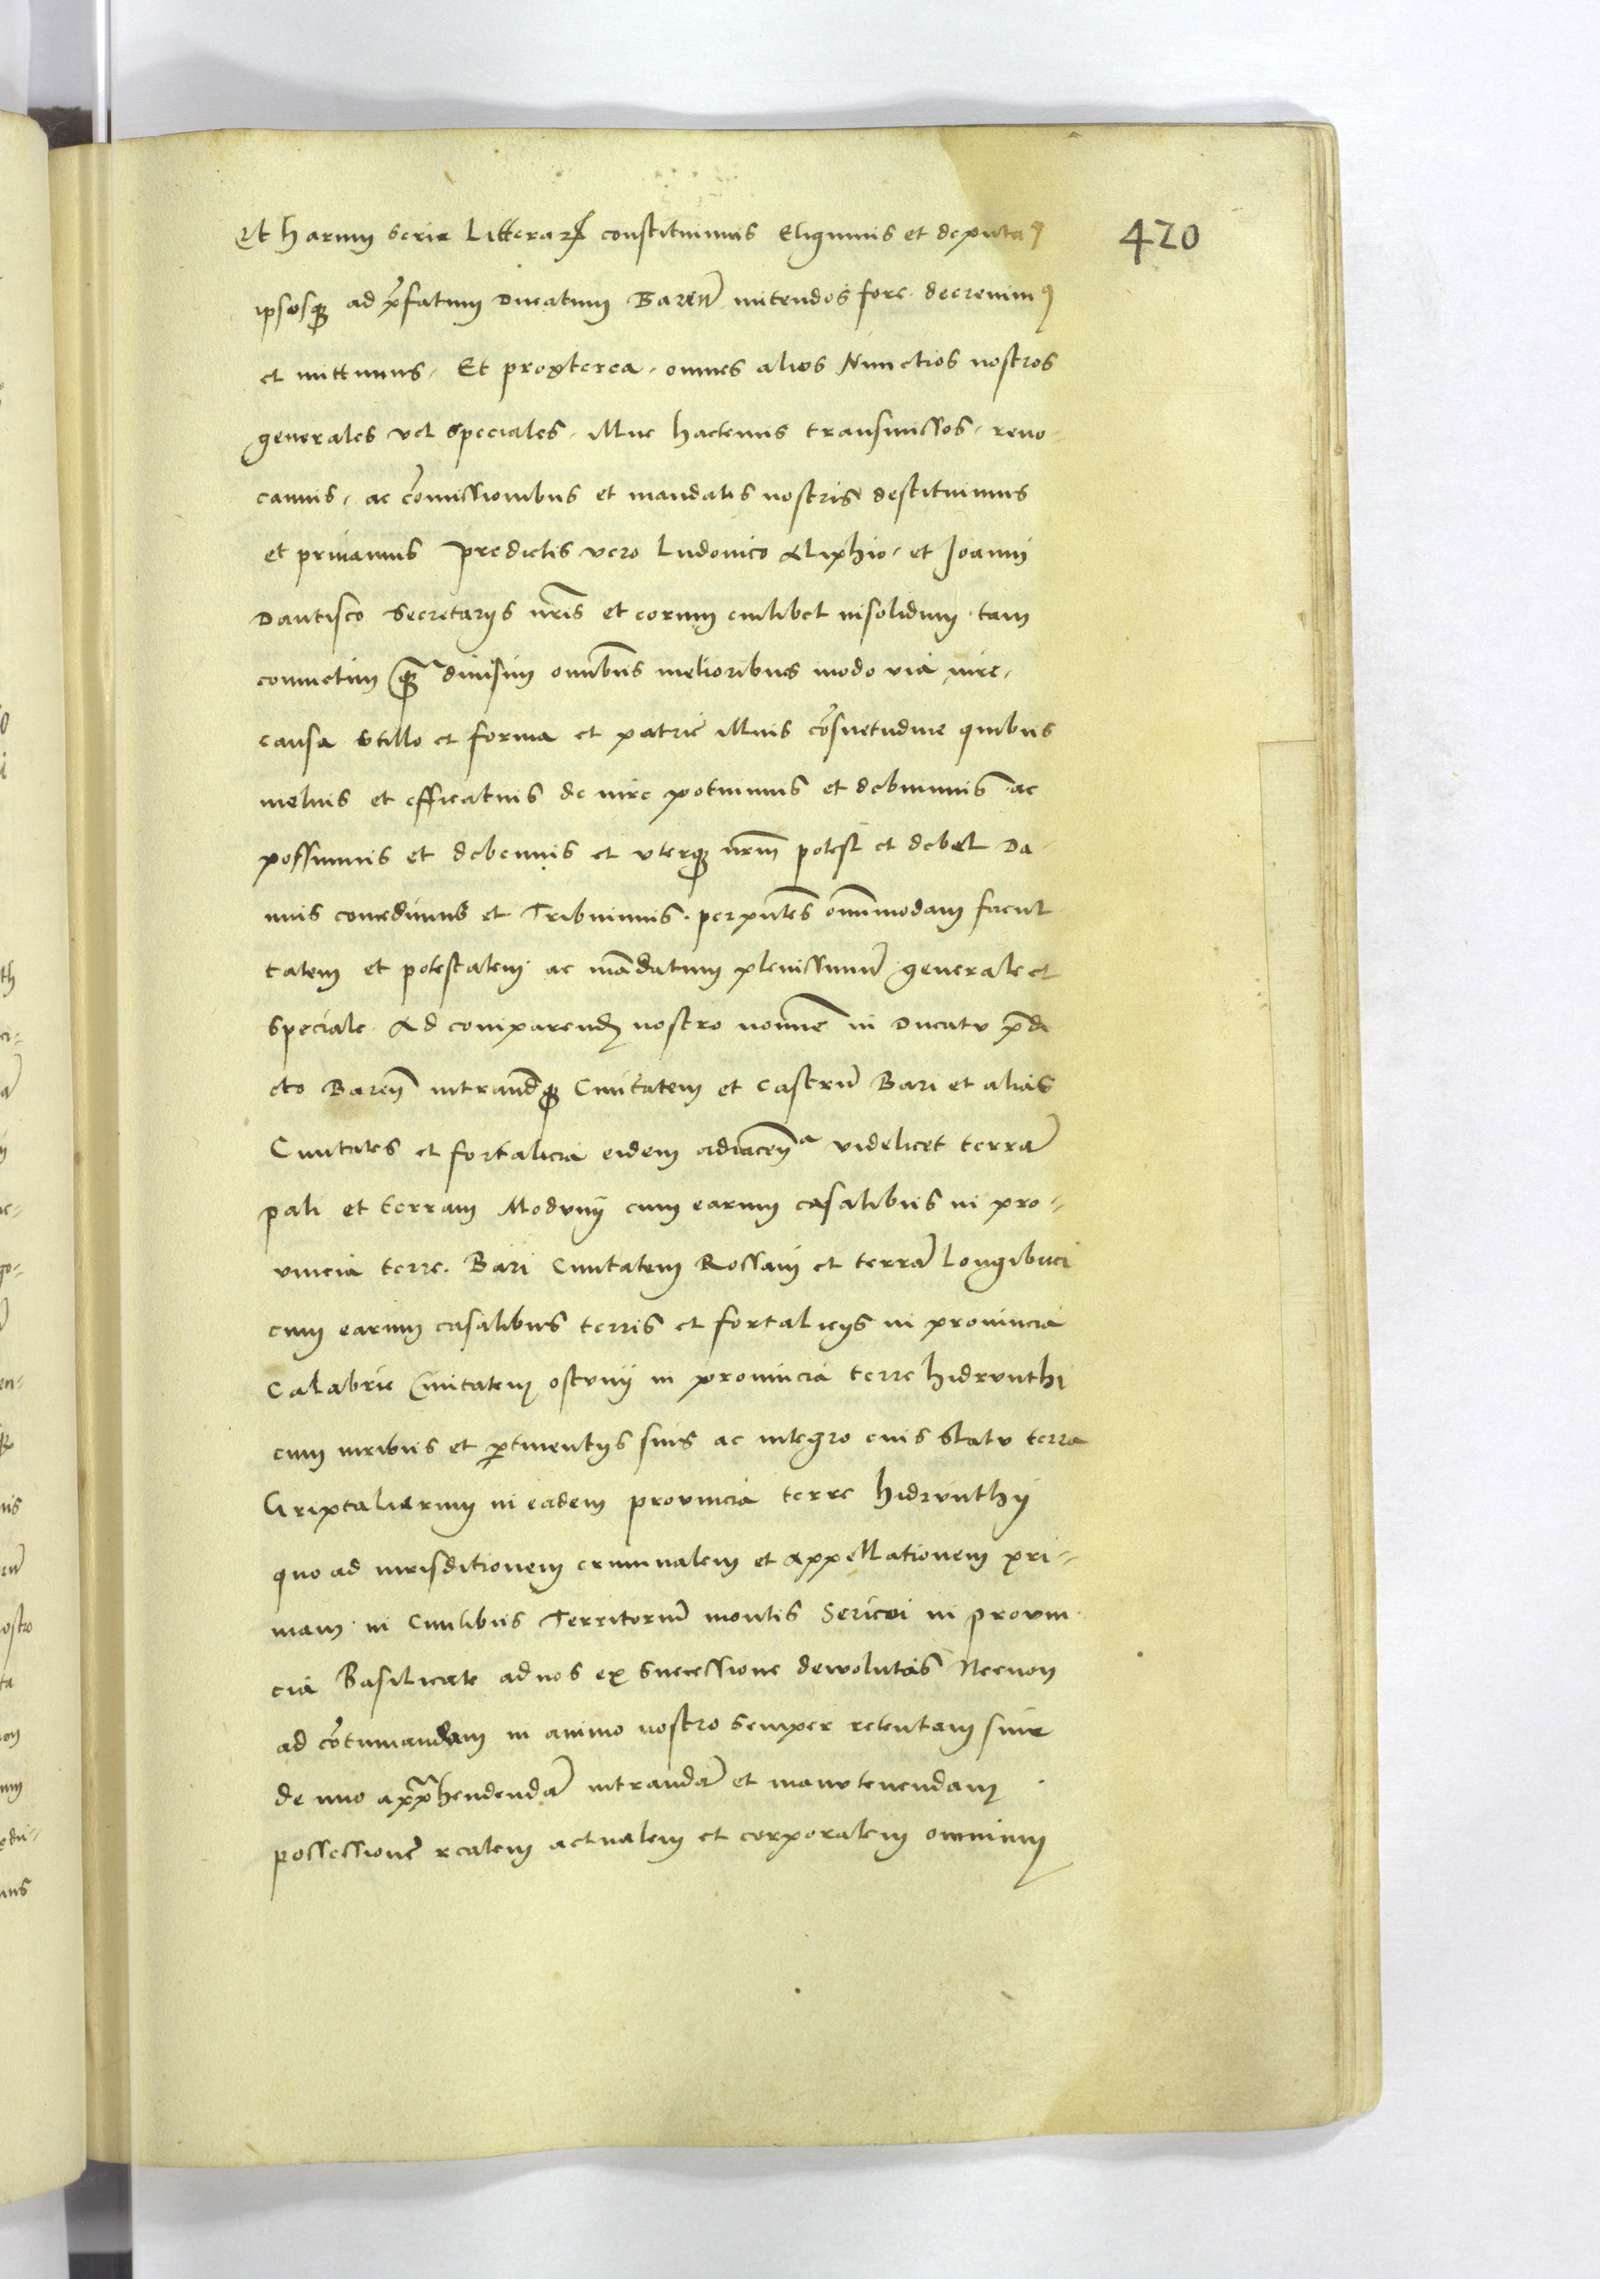 420
Et harum serie Litterarꝝ constituimus Eligimus et deputaꝰ
ipsosqꝫ ad p̄fatum Ducatum Bareñ mitendos fore decreuimꝰ
et mittimus. Et propterea. omnes alios Nunctios nostros
generales vel speciales. illuc hactenus transmissos. reuo-
camus. ac cōmissionibus et mandatis nostris destituimus
et priuamus Predictis vero Ludouico Aliphio. et Joanni
Dantisco Secretarys nr̄is et eorum cuilibet insolidum. tam
coniunctim qꝫ̄ diuisim omnibus melioribus modo via iure.
causa stillo et forma et patrie illius cōsuetudine quibus
melius et efficatius de iure potuimus et debuimus ac
possumus et debemus et vterqꝫ nr̄m potest et debet. Da-
mus concedimus et Tribuimus. per pñtes om̄imodam facul
tatem et potestatem. ac mādatum plenissimū generale et
speciale. Ad comparendȝ nostro nomine in Ducatu p̄di
cto Bareñ intrandqꝫ Ciuitatem et Castrū Bari et alias
Ciuitates et fortalicia eidem adiaceñᵃ videlicet terrā
pali et terram Modunÿ cum earum casalibus in pro-
uincia terre. Bari Ciuitatem Rossañ et terrā Longibuci
cum earum casalibus terris et fortalicÿs in prouincia
Calabrie Ciuitatem ostunÿ in prouincia terre hidrunthi
cum iuribus et ꝑtinentÿs suis ac integro eius statu terra
Criptaliarum in eadem prouincia terre hidrunthÿ
quo ad iurisditionem criminalem et appellationem pri-
mam. in Ciuilibus Territoriū montis Sericei in prouin
cia Basilicate ad nos ex successione dewolutas Necnon
ad cōtinuandam in animo nostro semper retentam siue
de nuo apprehendendā intrandā et manutenendam
possessionē realem actualem et corporalem omnium